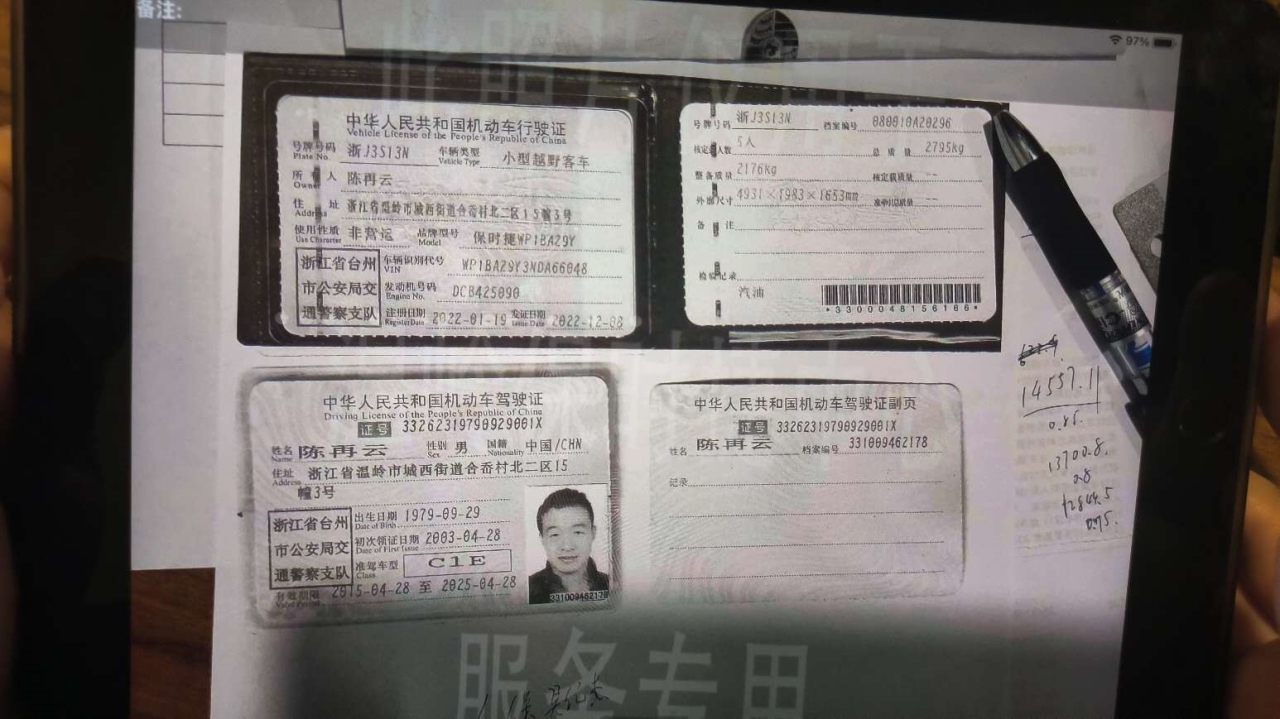 备注:
97%
中华人民共和国机动车行驶证
Vehicle License of the People's Republic of China
号牌号码 浙J3S13N 车辆类型 小型越野客车
Plate No. Vehicle Type
所有人 陈再云
Owner
住址 浙江省温岭市城西街道合岙村北二区15幢3号
Address
使用性质 非营运 品牌型号 保时捷WP1BA29Y
Use Character Model
浙江省台州
市公安局交
通警察支队
车辆识别代号 WP1BA29Y3NDA66048
VIN
发动机号码 DCB425090
Engine No.
注册日期 2022-01-19 发证日期 2022-12-08
Register Date Issue Date
号牌号码 浙J3S13N 档案编号 080010A20296
核定载人数 5人 总质量 2795kg
整备质量 2176kg 核定载质量 --
外廓尺寸 4931×1983×1653mm 准牵引总质量 --
备注
检验记录
汽油
*3300048156186*
中华人民共和国机动车驾驶证
Driving License of the People's Republic of China
证号 33262319790929001X
姓名 陈再云 性别 男 国籍 中国/CHN
Name Sex Nationality
住址 浙江省温岭市城西街道合岙村北二区15
Address
幢3号
浙江省台州
市公安局交
通警察支队
出生日期 1979-09-29
Date of Birth
初次领证日期 2003-04-28
Date of First Issue
准驾车型 C1E
Class
有效期限 2015-04-28 至 2025-04-28
Valid Period
331009462178
中华人民共和国机动车驾驶证副页
证号 33262319790929001X
姓名 陈再云 档案编号 331009462178
记录
14557.11
0.85.
13700.8.
0.8
12894.5
0.75.
服务专用